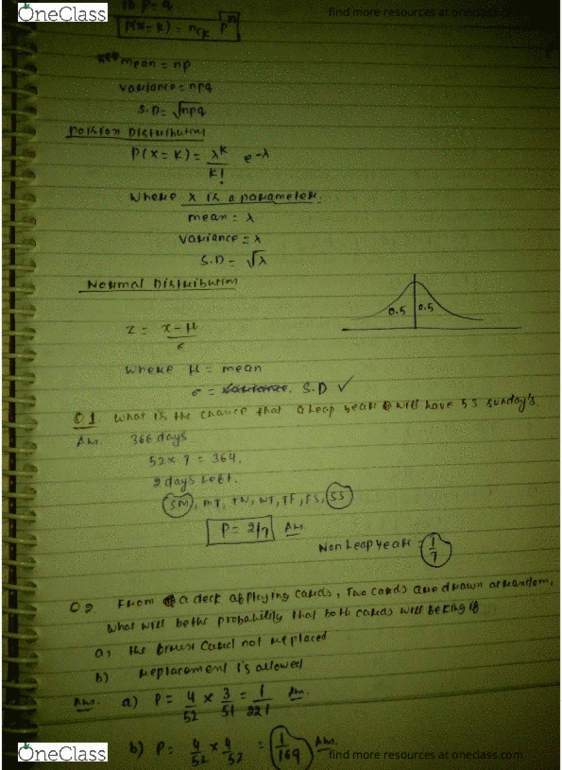 OneClass
find more resources at oneclass.com
P(X=K) = nCk
mean = np
variance = npq
S.D = √npq
Poision Distribution
P(X=K) = λ^K e^-λ
K!
where λ is a parameter.
mean = λ
variance = λ
S.D = √λ
Normal Distribution
0.5 | 0.5
z = x-μ
σ
where μ = mean
σ = variance. S.D ✓
Q1. What is the chance that a leap year will have 53 sunday's.
Ans. 366 days
52 x 7 = 364.
2 days left.
SM, MT, TW, WT, TF, FS, SS
P = 2/7 Ans
Non Leap Year = 1/7
Q2. From a deck of playing cards, Two cards are drawn at random.
What will be the probability that both cards will be king if
a) the card not replaced
b) replacement is allowed
Ans. a) P = 4/52 x 3/51 = 1/221 Ans.
b) P = 4/52 x 4/52 = 1/169 Ans.
OneClass
find more resources at oneclass.com